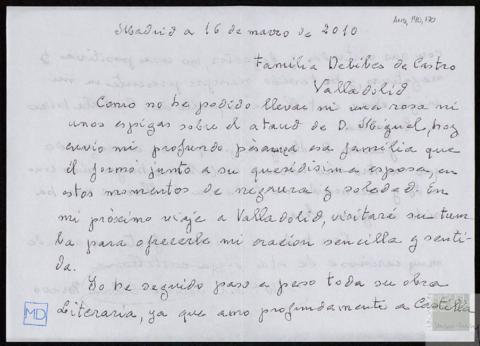 Madrid a 16 de marzo de 2010
Familia Delibes de Castro
Valladolid
Como no he podido llevar ni una rosa ni
unas espigas sobre el ataud de D. Miguel, hoy
envio mi profundo pésame a esa familia que
él formó junto a su queridísima esposa, en
estos momentos de negrura y soledad. En
mi próximo viaje a Valladolid, visitaré su tum
ba para ofrecerle mi oración sencilla y senti-
da.
Yo he seguido paso a paso toda su obra
literaria, ya que amo profundamente a Castilla
MD